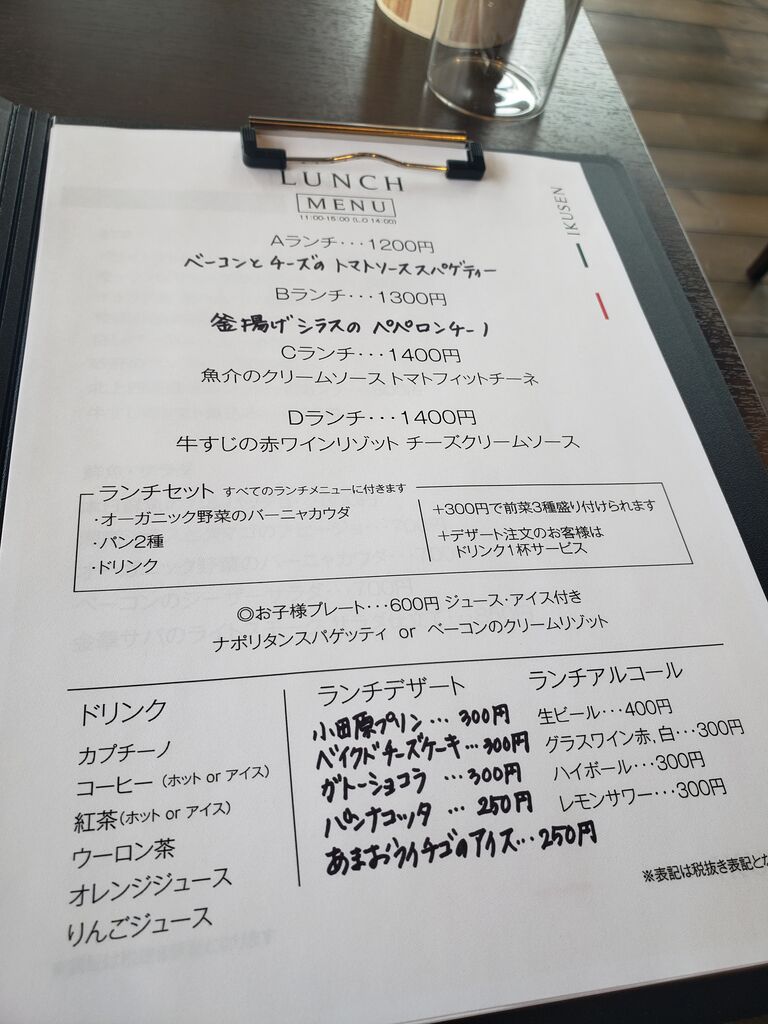 LUNCH
MENU
11:00-15:00 (L.O 14:00)
IKUSEN
Aランチ･･･1200円
ベーコンとチーズの トマトソーススパゲティー
Bランチ･･･1300円
釜揚げシラスの ペペロンチーノ
Cランチ･･･1400円
魚介のクリームソース トマトフィットチーネ
Dランチ･･･1400円
牛すじの赤ワインリゾット チーズクリームソース
ランチセット すべてのランチメニューに付きます
･オーガニック野菜のバーニャカウダ
･パン2種
･ドリンク
+300円で前菜3種盛り付けられます
+デザート注文のお客様は
ドリンク1杯サービス
◎お子様プレート･･･600円 ジュース･アイス付き
ナポリタンスパゲッティ or ベーコンのクリームリゾット
ドリンク
カプチーノ
コーヒー (ホット or アイス)
紅茶(ホット or アイス)
ウーロン茶
オレンジジュース
りんごジュース
ランチデザート
小田原プリン … 300円
ベイクドチーズケーキ…300円
ガトーショコラ … 300円
パンナコッタ … 250円
あまおうイチゴのアイス…250円
ランチアルコール
生ビール･･･400円
グラスワイン赤,白･･･300円
ハイボール･･･300円
レモンサワー･･･300円
※表記は税抜き表記とな